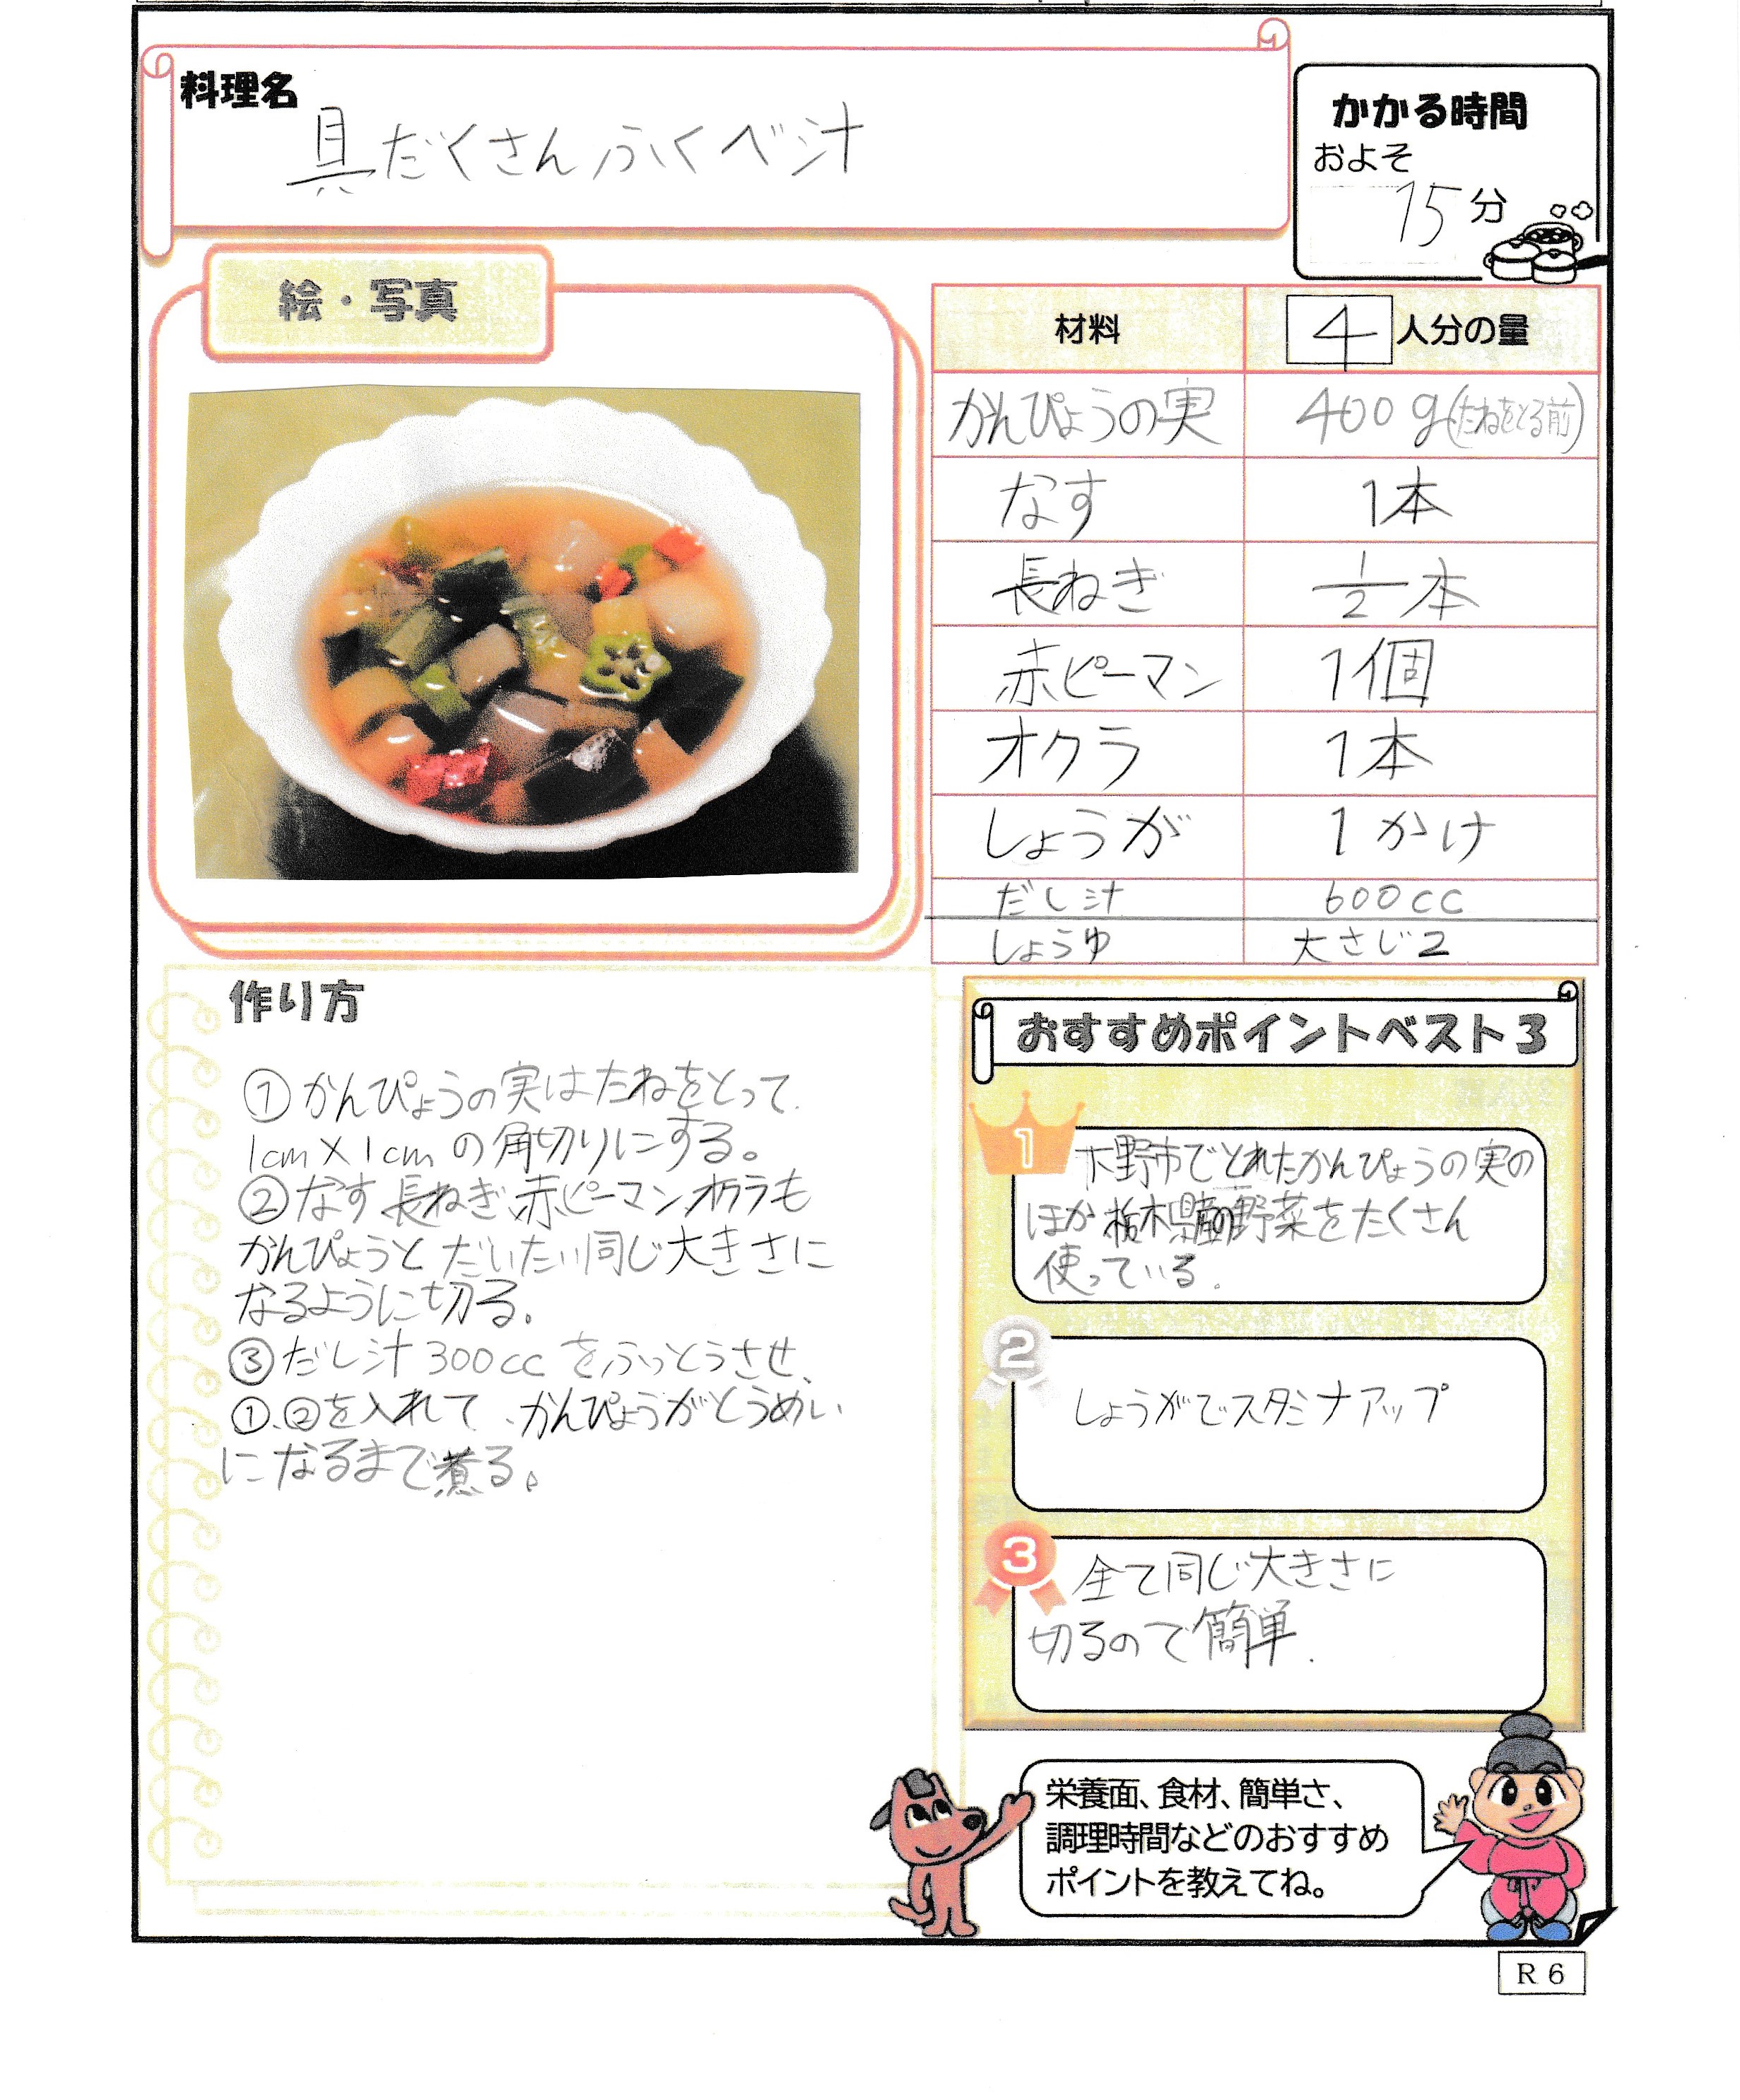 料理名
具だくさんふくべ汁
かかる時間
およそ
15分
絵・写真
材料 4人分の量
かんぴょうの実 400g(たねをとる前)
なす 1本
長ねぎ 1/2本
赤ピーマン 1個
オクラ 1本
しょうが 1かけ
だし汁 600cc
しょうゆ 大さじ2
作り方
①かんぴょうの実はたねをとって
1cm×1cmの角切りにする。
②なす、長ねぎ、赤ピーマン、オクラも
かんぴょうとだいたい同じ大きさに
なるように切る。
③だし汁300ccをふっとうさせ、
①、②を入れて、かんぴょうがとうめい
になるまで煮る。
おすすめポイントベスト3
1
下野市でとれたかんぴょうの実の
ほか栃木県産の野菜をたくさん
使っている。
2
しょうがでスタミナアップ
3
全て同じ大きさに
切るので簡単.
栄養面、食材、簡単さ、
調理時間などのおすすめ
ポイントを教えてね。
R6